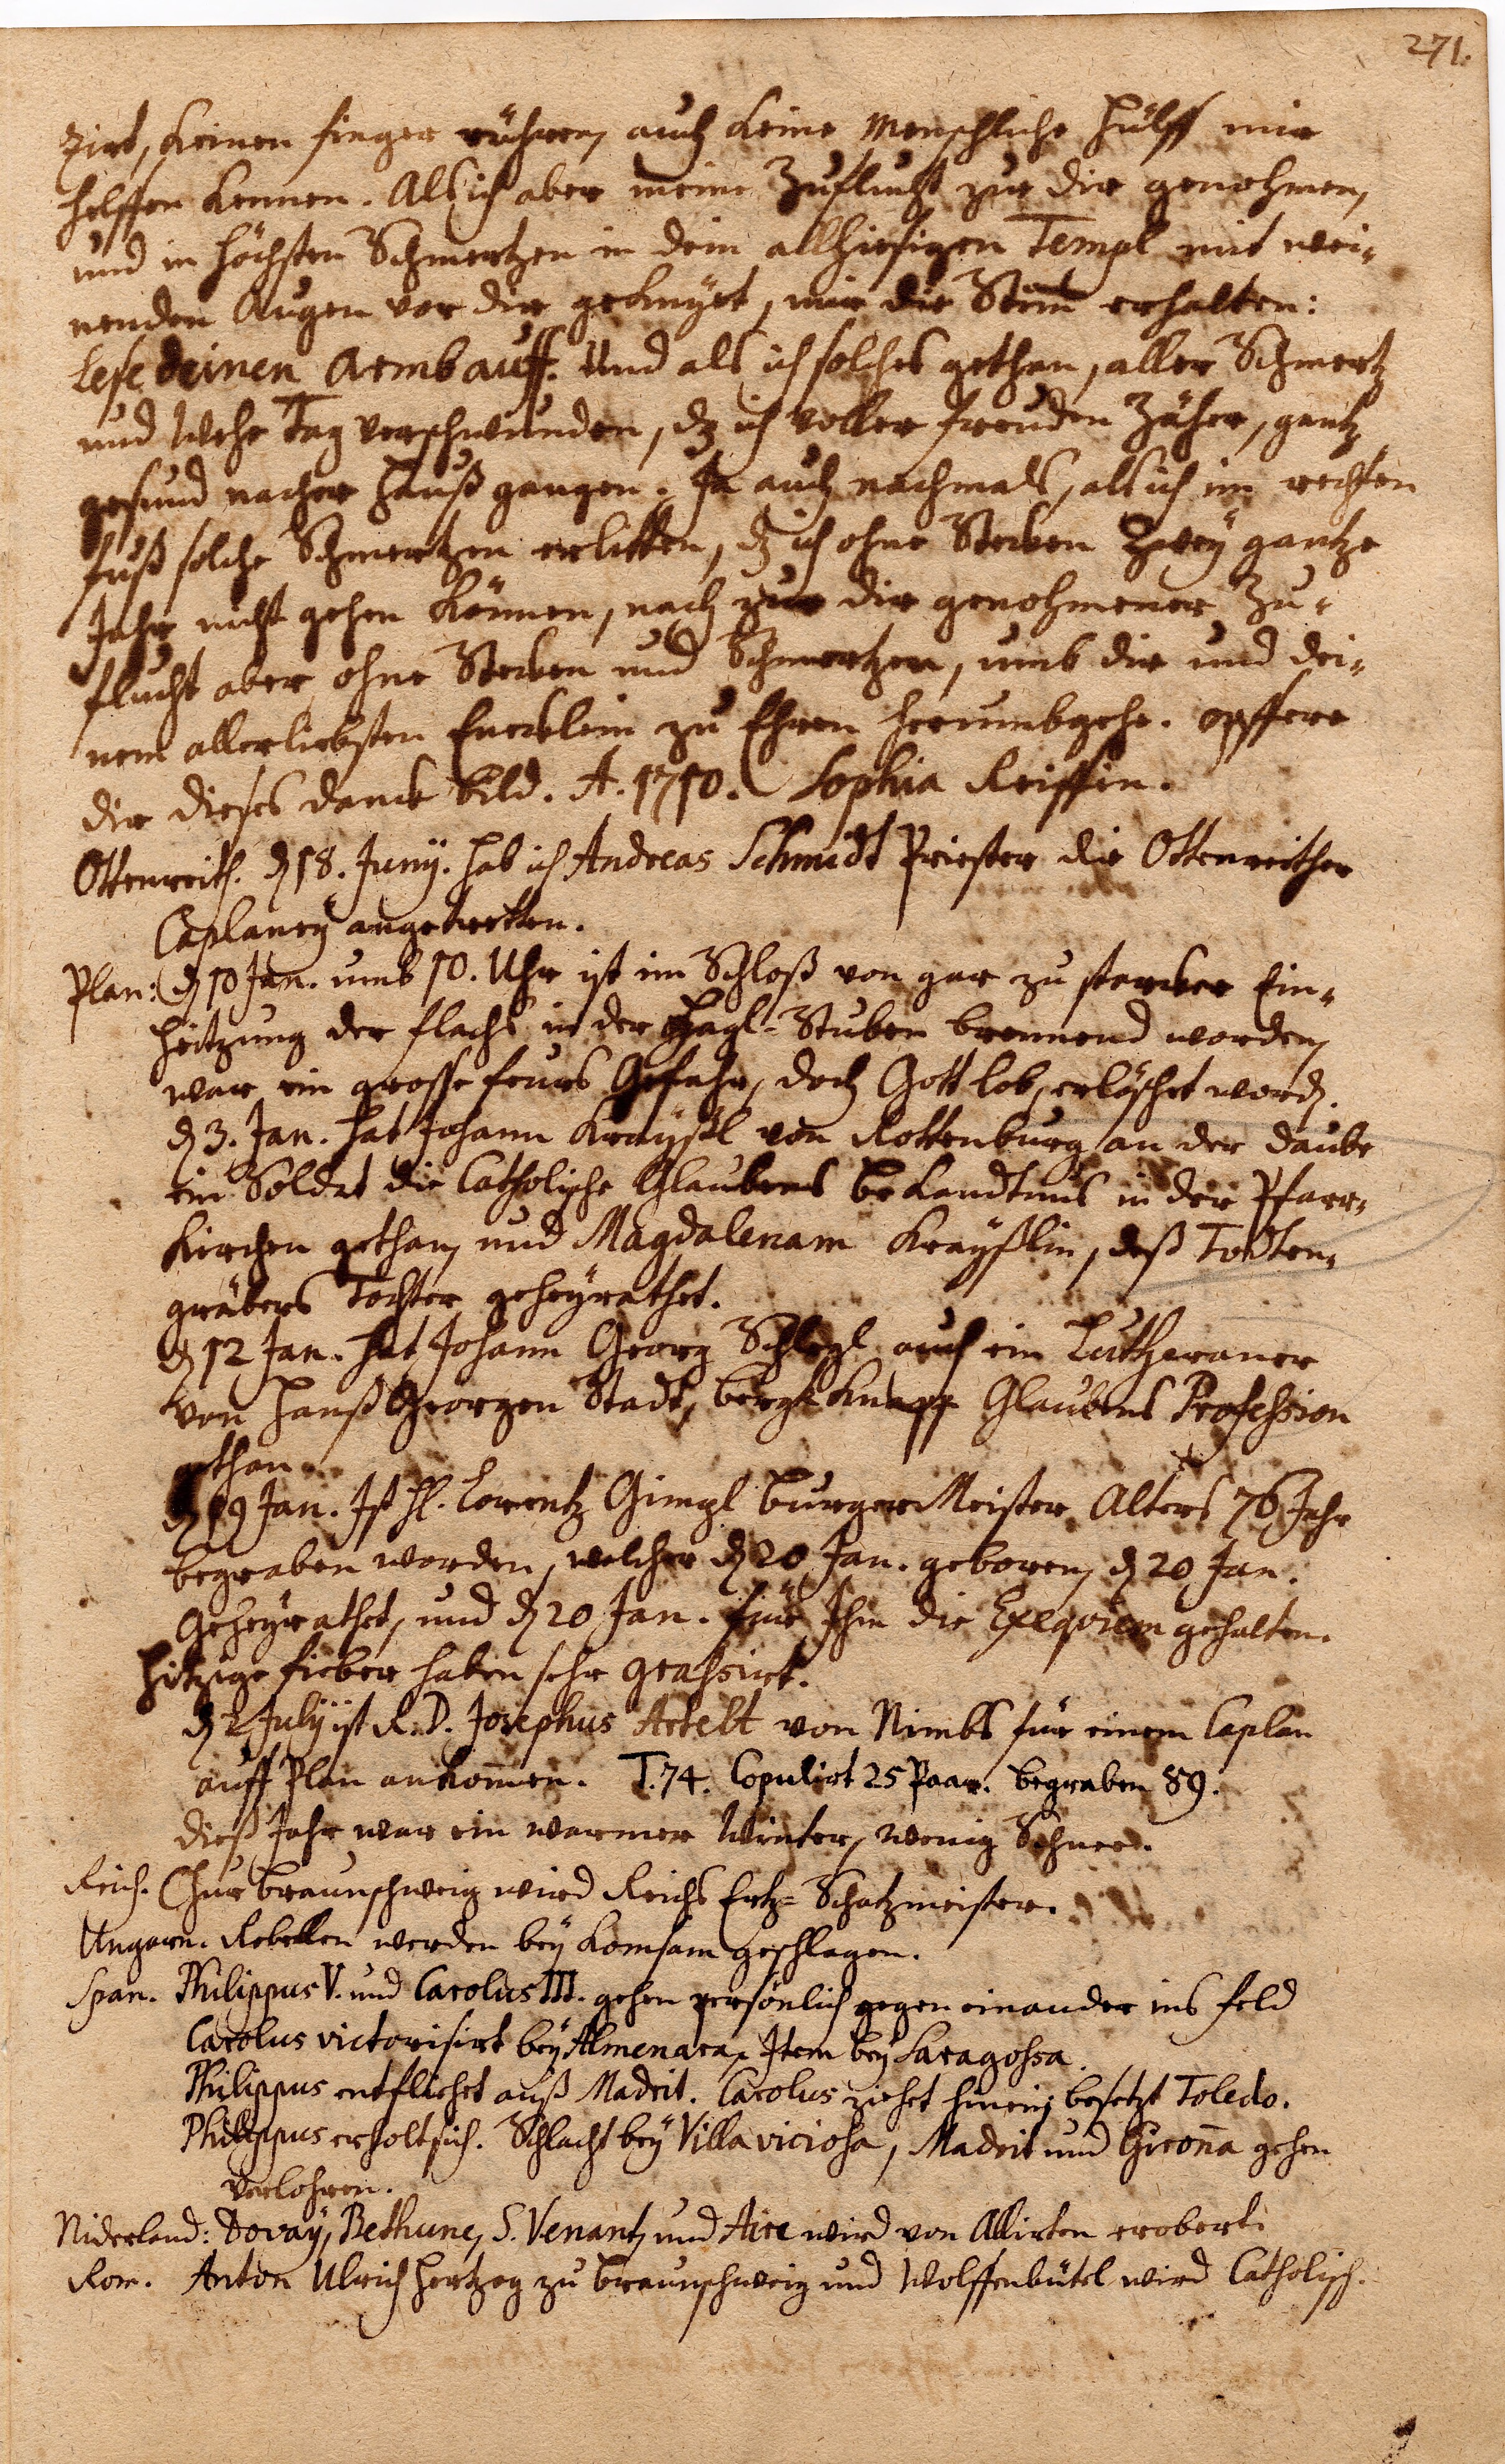 271.
zirt, keinen finger rühren, auch keine Menschliche hülff mir
helffen kennen. Als ich aber meine Zuflucht zur dir genohmen,
und in höchsten Schmertzen in dem allhiesigen Templ mit wei-
nenden Augen vor dir geknyet, mir die Stim̄ erhalten:
Lese deinen Armb auff. Und als ich solches gethan, aller Schmertz
und Wehe Tag verschwunden, dz ich voller freuden Zäher, gantz
gesund nacher Hauß gangen. Ja auch nachmals, als ich im rechten
fuß solche Schmertzen erlitten, dz ich ohne Stecken Zwey gantze
Jahr nicht gehen können, nach zur dir genohmener Zu-
flucht aber ohne Stecken und Schmertzen, umb dir und dei-
nem allerliebsten Encklein zu Ehren herumbgehe. opffere
dir dieses danck bild. A. 1710. Sophia Reiffin.
Ottenreith. d 18. Junÿ. hab ich Andreas Schmidt Priester die Ottenreither
Caplaneÿ angetretten.
Plan: d 10 Jan. umb 10. Uhr ist im Schloß von gar zu starcker Ein-
heitzung der flachs in der Stuben brennend worden,
war ein grosse feurs Gefahr, doch Gott lob, erläschet word.
d 3. Jan. hat Johann Kraÿßl von Rottenburg an der daube
ein Soldat die Catholische Glaubens bekandtnus in der Pfarr-
Kirchen gethan, und Magdalenam Kraÿßlin, deß Todten-
gräbers Tochter geheÿrathet.
d 12 Jan. hat Johann Georg Schlegl auch ein Lutheraner
von Hanß Georgen Stadt, bergk knapp Glaubens Profession
gethan
d 19 Jan. Ist H. Lorentz Gimpl burgerMeister Alters 76 Jahr
begraben worden, welcher d 20 Jan. geboren, d 20 Jan.
Geheÿrathet, und d 20 Jan. für Ihm die Exeqviem gehalten.
Hitzige fieber haben sehr grassirt.
d 2 Julÿ ist R. D. Josephus Artelt von Nimbs für einem Caplan
auff Plan ankom̄en. T. 74. Copulirt 25 Paar. begraben 89.
dieß Jahr war ein warmer Winter, wenig Schnee.
Reich. Chur braunschweig wird Reichs Ertz-Schatzmeister.
Ungarn. Rebellen werden beÿ geschlagen.
Span. Philippus V. und Carolus III. gehen persönlich gegen einander ins feld
Carolus victorisirt beÿ Almenara, Item beÿ Saragossa.
Philippus entfliehet auß Madrit. Carolus ziehet hinein, besetzt Toledo.
Philippus erholt sich. Schlacht beÿ Villa viciosa, Madrit und Giron̄a gehen
verlohren.
Niderland: Dovaÿ, Bethune, S. Venant, und Aire wird von Allirten erobert.
Rom. Anton Ulrich Hertzog zu braunschweig und Wolffenbütel wird Catholisch.